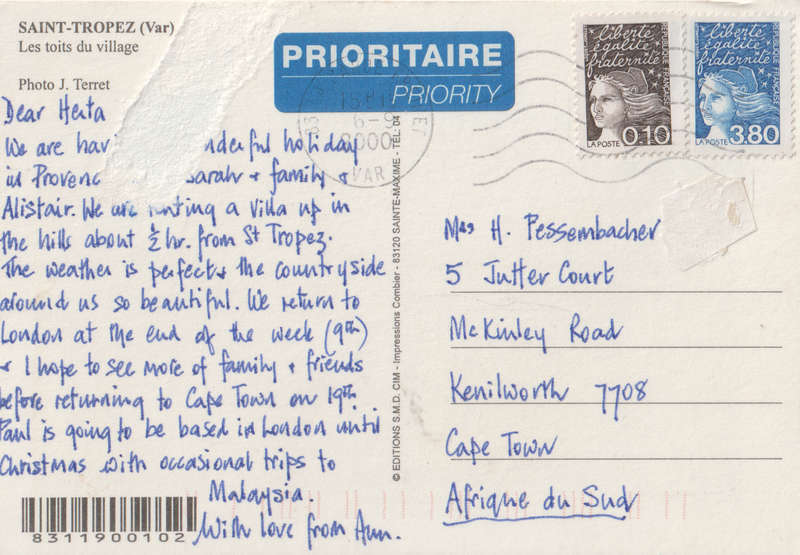 SAINT-TROPEZ (Var)
Les toits du village
Photo J. Terret
PRIORITAIRE
PRIORITY
liberté
égalité
fraternité
RÉPUBLIQUE FRANÇAISE
LA POSTE
0,10
liberté
égalité
fraternité
RÉPUBLIQUE FRANÇAISE
LA POSTE
3,80
6-9
2000
VAR
Dear Herta
We are havi nderful holiday
in Provenc Sarah + family +
Alistair. We are renting a villa up in
the hills about ½ hr. from St Tropez.
The weather is perfect + the countryside
around us so beautiful. We return to
London at the end of the week (9th)
+ I hope to see more of family + friends
before returning to Cape Town on 19th
Paul is going to be based in London until
Christmas with occasional trips to
Malaysia.
With love from Ann.
8311900102
© EDITIONS S.M.D. CIM - Impressions Combier - 83120 SAINTE-MAXIME - TEL. 04
Mrs H. Pessembacher
5 Jutter Court
McKinley Road
Kenilworth 7708
Cape Town
Afrique du Sud